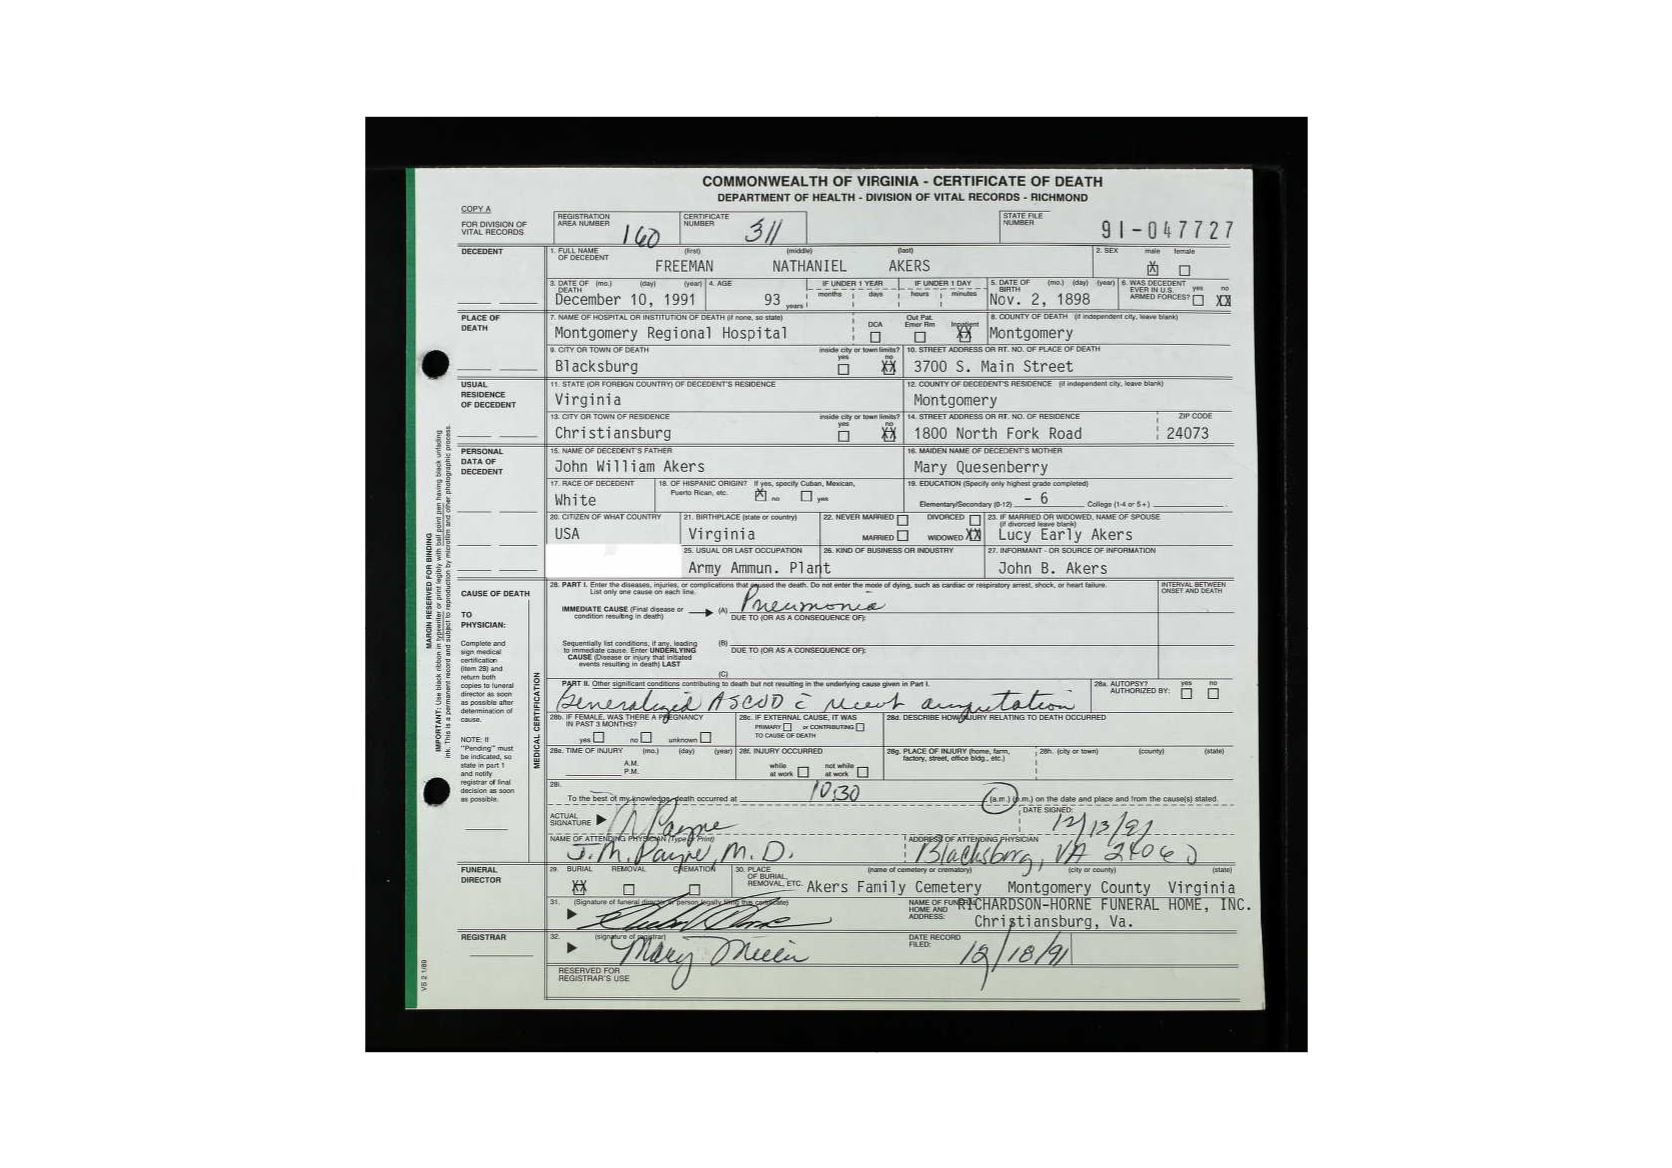 COMMONWEALTH OF VIRGINIA - CERTIFICATE OF DEATH
DEPARTMENT OF HEALTH - DIVISION OF VITAL RECORDS - RICHMOND
COPY A
FOR DIVISION OF VITAL RECORDS
REGISTRATION AREA NUMBER 160
CERTIFICATE NUMBER 311
STATE FILE NUMBER 91-047727
DECEDENT
1. FULL NAME OF DECEDENT (first) (middle) (last)
FREEMAN NATHANIEL AKERS
2. SEX male female
X
3. DATE OF DEATH (mo.) (day) (year)
December 10, 1991
4. AGE 93 years
IF UNDER 1 YEAR months days
IF UNDER 1 DAY hours minutes
5. DATE OF BIRTH (mo.) (day) (year)
Nov. 2, 1898
6. WAS DECEDENT EVER IN U.S. ARMED FORCES? yes no
XX
PLACE OF DEATH
7. NAME OF HOSPITAL OR INSTITUTION OF DEATH (if none, so state)
Montgomery Regional Hospital
DOA Out Pat. Emer Rm Inpatient
XX
8. COUNTY OF DEATH (if independent city, leave blank)
Montgomery
9. CITY OR TOWN OF DEATH
Blacksburg
inside city or town limits? yes no
XX
10. STREET ADDRESS OR RT. NO. OF PLACE OF DEATH
3700 S. Main Street
USUAL RESIDENCE OF DECEDENT
11. STATE (OR FOREIGN COUNTRY) OF DECEDENT'S RESIDENCE
Virginia
12. COUNTY OF DECEDENT'S RESIDENCE (if independent city, leave blank)
Montgomery
13. CITY OR TOWN OF RESIDENCE
Christiansburg
inside city or town limits? yes no
XX
14. STREET ADDRESS OR RT. NO. OF RESIDENCE
1800 North Fork Road
ZIP CODE
24073
PERSONAL DATA OF DECEDENT
15. NAME OF DECEDENT'S FATHER
John William Akers
16. MAIDEN NAME OF DECEDENT'S MOTHER
Mary Quesenberry
17. RACE OF DECEDENT
White
18. OF HISPANIC ORIGIN? If yes, specify Cuban, Mexican, Puerto Rican, etc.
X no yes
19. EDUCATION (Specify only highest grade completed)
Elementary/Secondary (0-12) - 6 College (1-4 or 5+)
20. CITIZEN OF WHAT COUNTRY
USA
21. BIRTHPLACE (state or country)
Virginia
22. NEVER MARRIED DIVORCED
MARRIED WIDOWED XX
23. IF MARRIED OR WIDOWED, NAME OF SPOUSE (if divorced leave blank)
Lucy Early Akers
25. USUAL OR LAST OCCUPATION
Army Ammun. Plant
26. KIND OF BUSINESS OR INDUSTRY
27. INFORMANT - OR SOURCE OF INFORMATION
John B. Akers
CAUSE OF DEATH
TO PHYSICIAN:
Complete and sign medical certification (item 28) and return both copies to funeral director as soon as possible after determination of cause.
NOTE: If "Pending" must be indicated, so state in part 1 and notify registrar of final decision as soon as possible.
MEDICAL CERTIFICATION
28. PART I. Enter the diseases, injuries, or complications that caused the death. Do not enter the mode of dying, such as cardiac or respiratory arrest, shock, or heart failure.
List only one cause on each line.
INTERVAL BETWEEN ONSET AND DEATH
IMMEDIATE CAUSE (Final disease or condition resulting in death)
(A) Pneumonia
DUE TO (OR AS A CONSEQUENCE OF):
Sequentially list conditions, if any, leading to immediate cause. Enter UNDERLYING CAUSE (Disease or injury that initiated events resulting in death) LAST
(B)
DUE TO (OR AS A CONSEQUENCE OF):
(C)
PART II. Other significant conditions contributing to death but not resulting in the underlying cause given in Part I.
Generalized ASCVD c̄ recent amputation
28a. AUTOPSY? yes no
AUTHORIZED BY:
28b. IF FEMALE, WAS THERE A PREGNANCY IN PAST 3 MONTHS?
yes no unknown
28c. IF EXTERNAL CAUSE, IT WAS
PRIMARY or CONTRIBUTING
TO CAUSE OF DEATH
28d. DESCRIBE HOW INJURY RELATING TO DEATH OCCURRED
28e. TIME OF INJURY (mo.) (day) (year)
A.M.
P.M.
28f. INJURY OCCURRED
while at work not while at work
28g. PLACE OF INJURY (home, farm, factory, street, office bldg., etc.)
28h. (city or town) (county) (state)
28i.
To the best of my knowledge, death occurred at 10:30 (a.m.) (p.m.) on the date and place and from the cause(s) stated.
ACTUAL SIGNATURE Payne
DATE SIGNED: 12/13/91
NAME OF ATTENDING PHYSICIAN (Type or Print)
J. M. Payne, M.D.
ADDRESS OF ATTENDING PHYSICIAN
Blacksburg, VA 24060
FUNERAL DIRECTOR
29. BURIAL REMOVAL CREMATION
XX
30. PLACE OF BURIAL, REMOVAL, ETC. (name of cemetery or crematory) (city or county) (state)
Akers Family Cemetery Montgomery County Virginia
31. (Signature of funeral director or person legally filing this certificate)
NAME OF FUNERAL HOME AND ADDRESS:
RICHARDSON-HORNE FUNERAL HOME, INC.
Christiansburg, Va.
REGISTRAR
32. (signature of registrar)
Mary Miller
DATE RECORD FILED: 12/18/91
RESERVED FOR REGISTRAR'S USE
MARGIN RESERVED FOR BINDING
IMPORTANT: Use black ribbon in typewriter or print legibly with ball point pen having black unfading
ink. This is a permanent record and subject to reproduction by microfilm and other photographic process.
VS 2 1/89